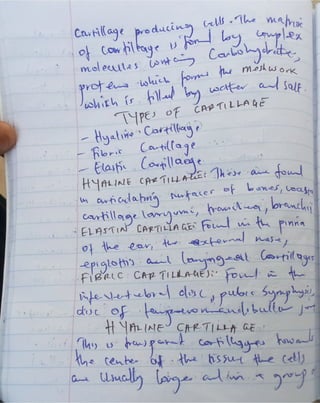 Cartillage producing cells. The matrix
of cartillage is formed by complex
molecules containing Carbohydrates,
proteins which forms the meshwork
which is filled by water and salt.
TYPES OF CARTILLAGE
- Hyaline Cartillage
- Fibric Cartillage
- Elastic Cartillage
HYALINE CARTILLAGE: These are found
in articulating surfaces of bones, costal
cartillage larygumi, trachea, branchii
- ELASTIN CARTILLAGE: Found in the pinna
of the ear, the external nose,
epiglottis and laryngeal Cartillages
FIBRIC CARTILLAGES:- Found in the
intervertebral disc, pubic symphysis,
disc of temporomandibular
HYALINE CARTILLAGE
This is transparent cartillages towards
the center of the tissue the cells
are Usually larger and in a group